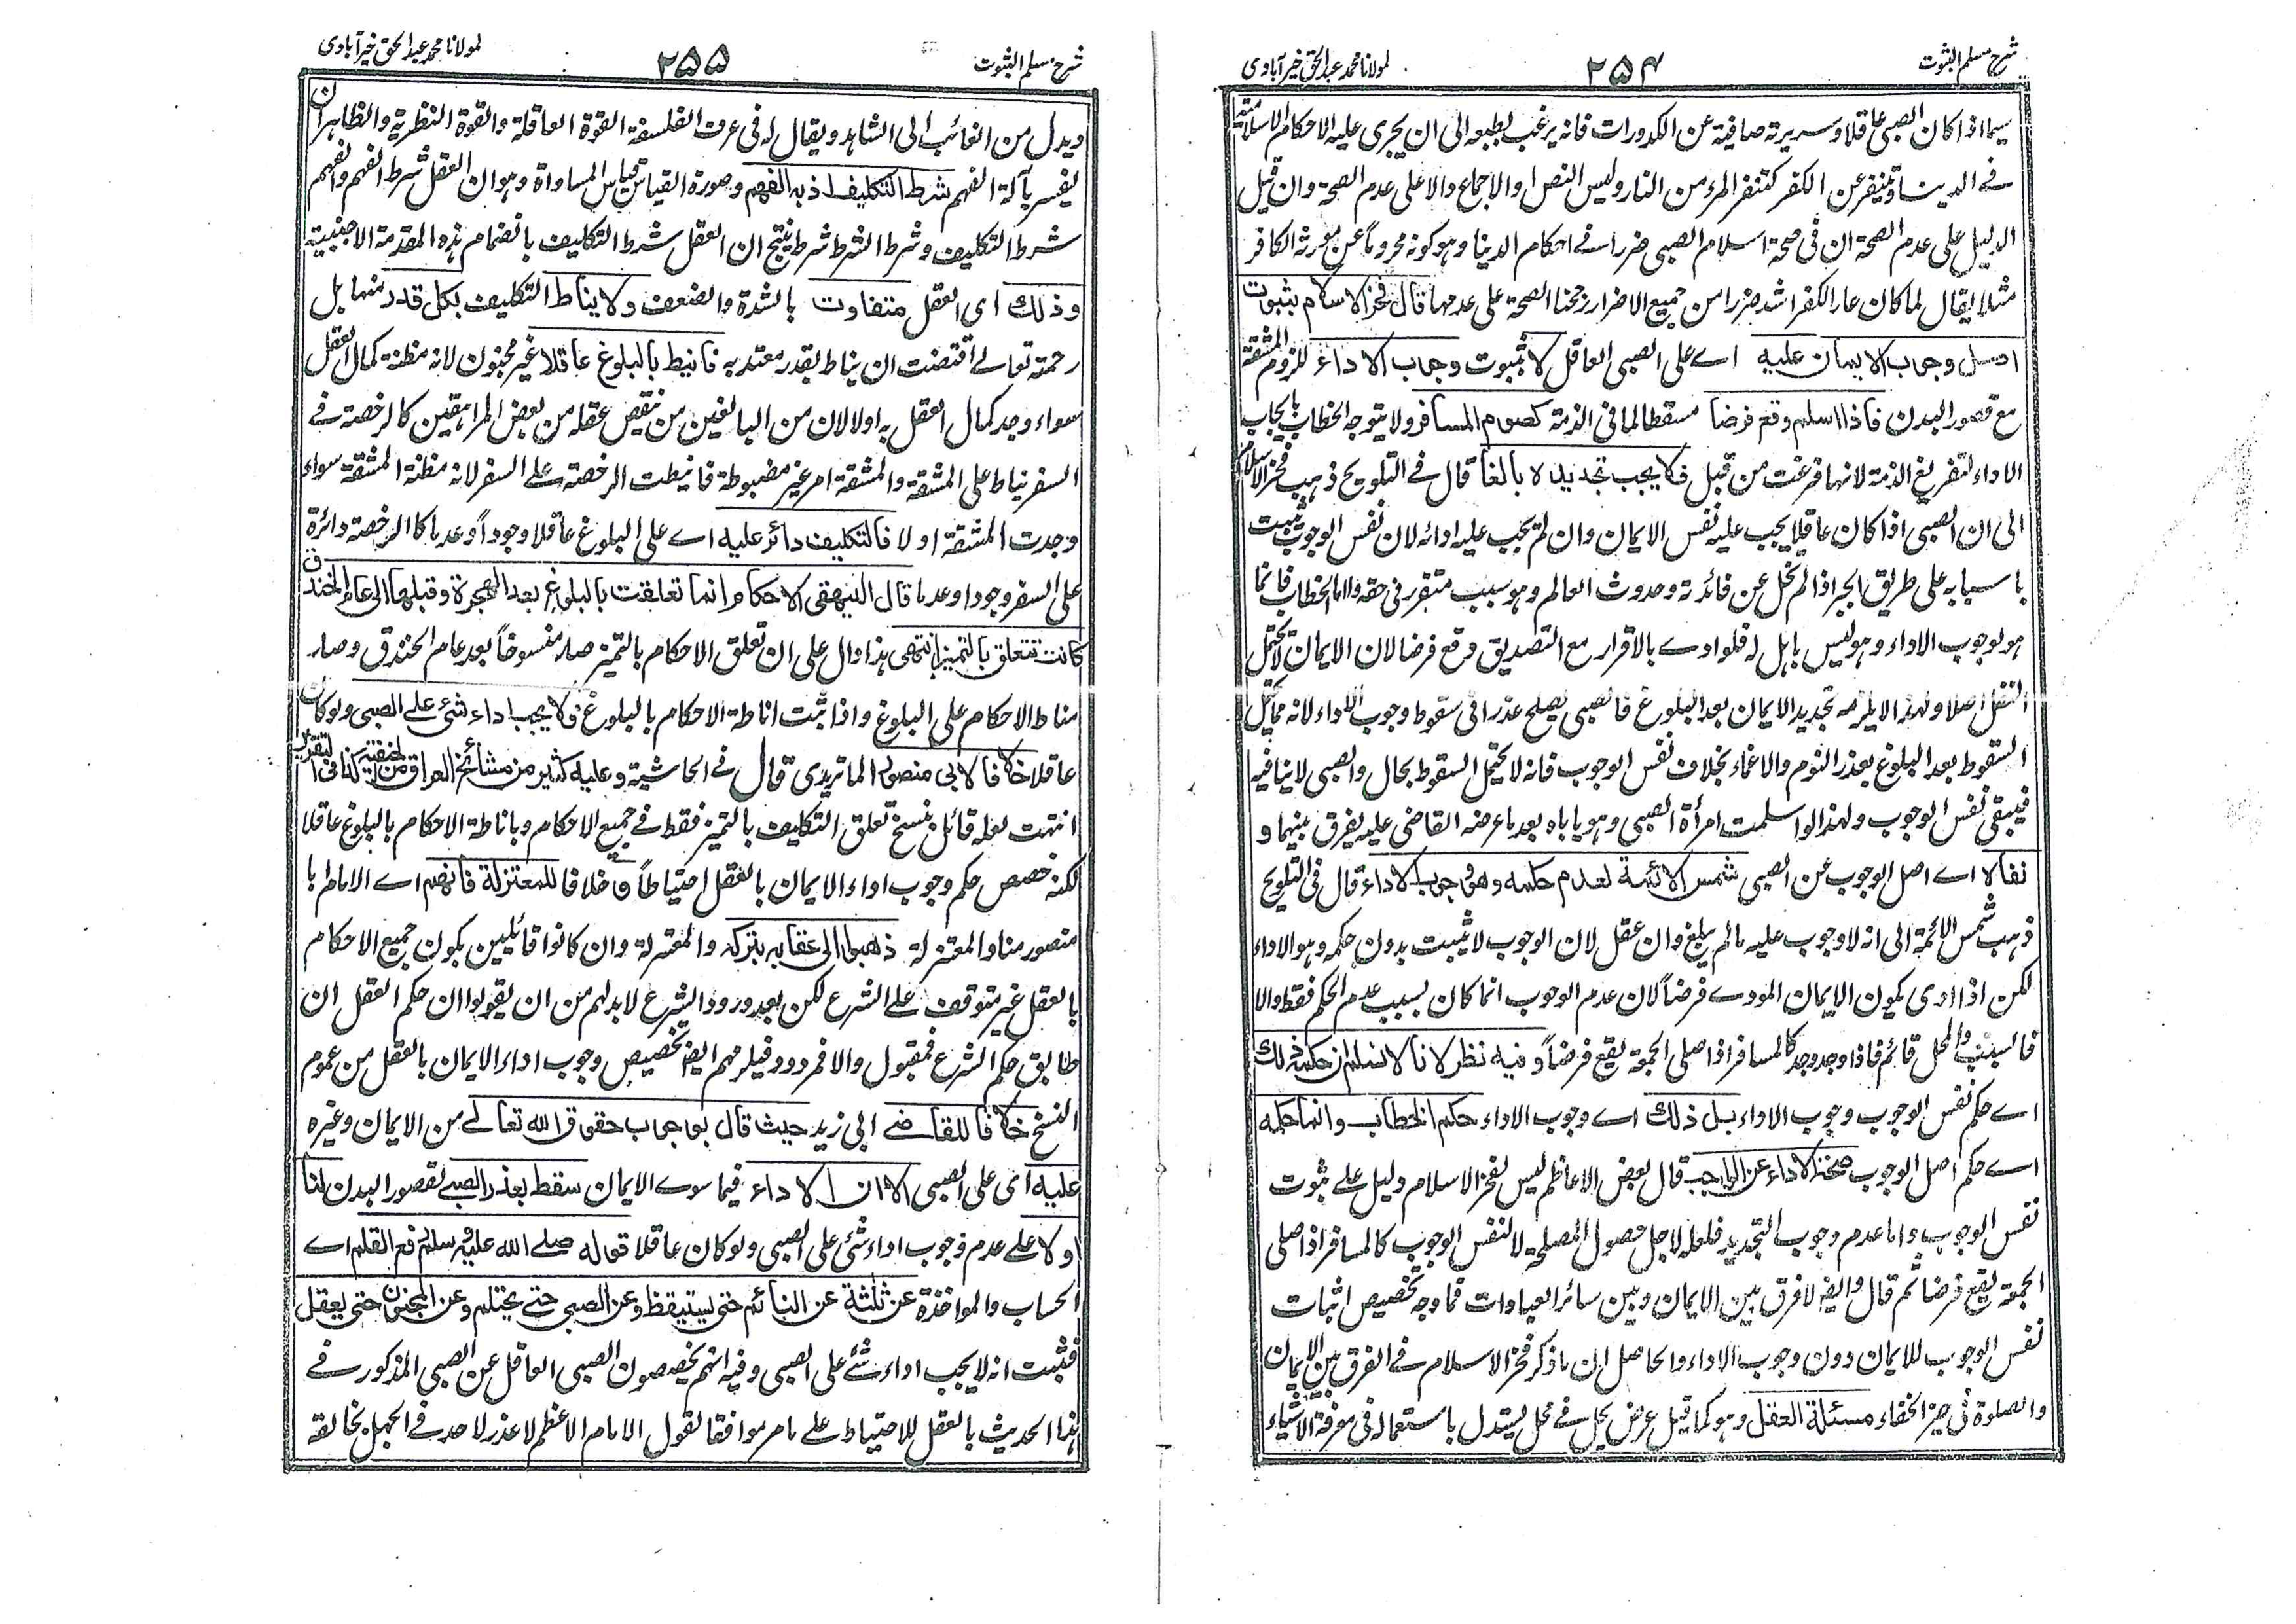 شرح مسلم الثبوت
۲۵۴
لمولانا محمد عبد الحق خیرآبادی
سیما اذا کان الصبی عاقلا وسریرته صافیة عن الکدورات فانه یرغب بطبعه الی ان یجری علیه الاحکام الاسلامیة
فی الدنیا ویتنفر عن الکفر کتنفر المرء من النار ولیس النص او الاجماع دالا علی عدم الصحة وان قیل
الدلیل علی عدم الصحة ان فی صحة اسلام الصبی ضررا فی احکام الدنیا وهو کونه محروما عن مورثه الکافر
مثلا یقال لما کان عار الکفر اشد ضررا من جمیع الاضرار رجحنا الصحة علی عدمها قال فخر الاسلام بثبوت
اصل وجوب الایمان علیه اے علی الصبی العاقل لا ثبوت وجوب الاداء للزوم المشقة
مع قصور البدن فاذا اسلم وقع فرضا مسقطا لما فی الذمة کصوم المسافر ولا یتوجه الخطاب بایجاب
الاداء لتفریغ الذمة لانها فرغت من قبل فلا یجب تجدیده بالغا قال فی التلویح ذهب فخر الاسلام
الی ان الصبی اذا کان عاقلا یجب علیه نفس الایمان وان لم یجب علیه ادائه لان نفس الوجوب یثبت
باسبابه علی طریق الجبر اذا لم یخل عن فائدة وحدوث العالم وهو سبب متقرر فی حقه واما الخطاب فانما
هو لوجوب الاداء وهو لیس باهل له فلو ادی بالاقرار مع التصدیق وقع فرضا لان الایمان لا یحتمل
النفل اصلا ولهذا لا یلزمه تجدید الایمان بعد البلوغ فالصبی یصلح عذرا فی سقوط وجوب الاداء لانه مما یحتمل
السقوط بعد البلوغ بعذر النوم والاغماء بخلاف نفس الوجوب فانه لا یحتمل السقوط بحال والصبی لا ینافیه
فیبقی نفس الوجوب ولهذا لو اسلمت امرأة الصبی وهو یاباه بعد ما عرضه القاضی علیه یفرق بینهما و
نفاه اے اصل الوجوب عن الصبی شمس الائمة لعدم حکمه وهو وجوب الاداء قال فی التلویح
ذهب شمس الائمة الی انه لا وجوب علیه ما لم یبلغ وان عقل لان الوجوب لا یثبت بدون حکمه وهو الاداء
لکن اذا ادی یکون الایمان المودی فرضاً لان عدم الوجوب انما کان بسبب عدم الحکم فقط والا
فالسبب والمحل قائم فاذا وجد وجد کالمسافر اذا صلی الجمعة یقع فرضاً وفیه نظر لانا لا نسلم ان حکمه ذلک
اے حکم نفس الوجوب وجوب الاداء بل ذلک اے وجوب الاداء حکم الخطاب وانما حکمه
اے حکم اصل الوجوب صحة الاداء عن الواجب قال بعض الاعاظم لیس لفخر الاسلام دلیل علی ثبوت
نفس الوجوب واما عدم وجوب التجدید فلعله لاجل حصول المصلحة لا لنفس الوجوب کالمسافر اذا صلی
الجمعة یقع فرضا ثم قال وایضا لا فرق بین الایمان وبین سائر العبادات فما وجه تخصیص اثبات
نفس الوجوب للایمان دون وجوب الاداء والحاصل ان ما ذکر فخر الاسلام فی الفرق بین الایمان
والصلوة فی حیز الخفاء مسئلة العقل وهو کما قیل عرض یحل فی محل یستدل باستعماله فی معرفة الاشیاء
شرح مسلم الثبوت
۲۵۵
لمولانا محمد عبد الحق خیرآبادی
ویدل من الغائب الی الشاهد ویقال له فی عرف الفلسفة القوة العاقلة والقوة النظریة والظاهر ان
یفسر بآلة الفهم شرط التکلیف اذ به الفهم وصورة القیاس قیاس المساواة وهو ان العقل شرط الفهم والفهم
شرط التکلیف وشرط الشرط شرط ینتج ان العقل شرط التکلیف بانضمام هذه المقدمة الاجنبیة
وذلک ای العقل متفاوت بالشدة والضعف ولا یناط التکلیف بکل قدر منها بل
رحمته تعالے اقتضت ان یناط بقدر معتد به فانیط بالبلوغ عاقلا غیر مجنون لانه مظنة کمال العقل
سواء وجد کمال العقل به اولا لان من البالغین من نقص عقله من بعض المراهقین کالرخصة فی
السفر نیاط علی المشقة والمشقة امر غیر مضبوطة فانیطت الرخصة علی السفر لانه مظنة المشقة سواء
وجدت المشقة اولا فالتکلیف دائر علیه اے علی البلوغ عاقلا وجوداً وعدما کالرخصة دائرة
علی السفر وجودا وعدما قال البیهقی الاحکام انما تعلقت بالبلوغ بعد الهجرة وقبلها الی عام الخندق
کانت تتعلق بالتمییز انتهی هذا دال علی ان تعلق الاحکام بالتمیز صار منسوخاً بعد عام الخندق وصار
مناط الاحکام علی البلوغ واذا ثبت اناطة الاحکام بالبلوغ فلا یجب اداء شئ علی الصبی ولو کان
عاقلا خلافا لابی منصور الماتریدی قال فی الحاشیة وعلیه کثیر من مشائخ العراق من الحنفیة کذا فی التقریر
انتهت لعله قائل بنسخ تعلق التکلیف بالتمیز فقط فی جمیع الاحکام وباناطة الاحکام بالبلوغ عاقلا
لکنه خصص حکم وجوب اداء الایمان بالعقل احتیاطاً و خلافا للمعتزلة فانهم اے الامام ابا
منصور منا والمعتزلة ذهبوا الی عقابه بترکه والمعتزلة وان کانوا قائلین بکون جمیع الاحکام
بالعقل غیر متوقف علی الشرع لکن بعد ورود الشرع لا بد لهم من ان یقولوا ان حکم العقل ان
طابق حکم الشرع فمقبول والا فمردود فیلزمهم ایضا تخصیص وجوب اداء الایمان بالعقل من عموم
النسخ خلافا للقاضی ابی زید حیث قال بوجوب حقوق الله تعالے من الایمان وغیره
علیه ای علی الصبی الا ان الاداء فیما سوے الایمان سقط بعذر الصبے لقصور البدن لنا
اولا علی عدم وجوب اداء شئ علی الصبی ولو کان عاقلا قوله صلے الله علیه وسلم رفع القلم اے
الحساب والمواخذة عن ثلثة عن النائم حتی یستیقظ وعن الصبی حتے یحتلم وعن المجنون حتی یعقل
فثبت انه لا یجب اداء شئے علی الصبی وفیه انهم یخصصون الصبی العاقل عن الصبی المذکور فی
هذا الحدیث بالعقل للاحتیاط علی ما مر موافقا لقول الامام الاعظم لا عذر لاحد فی الجهل بخالقه